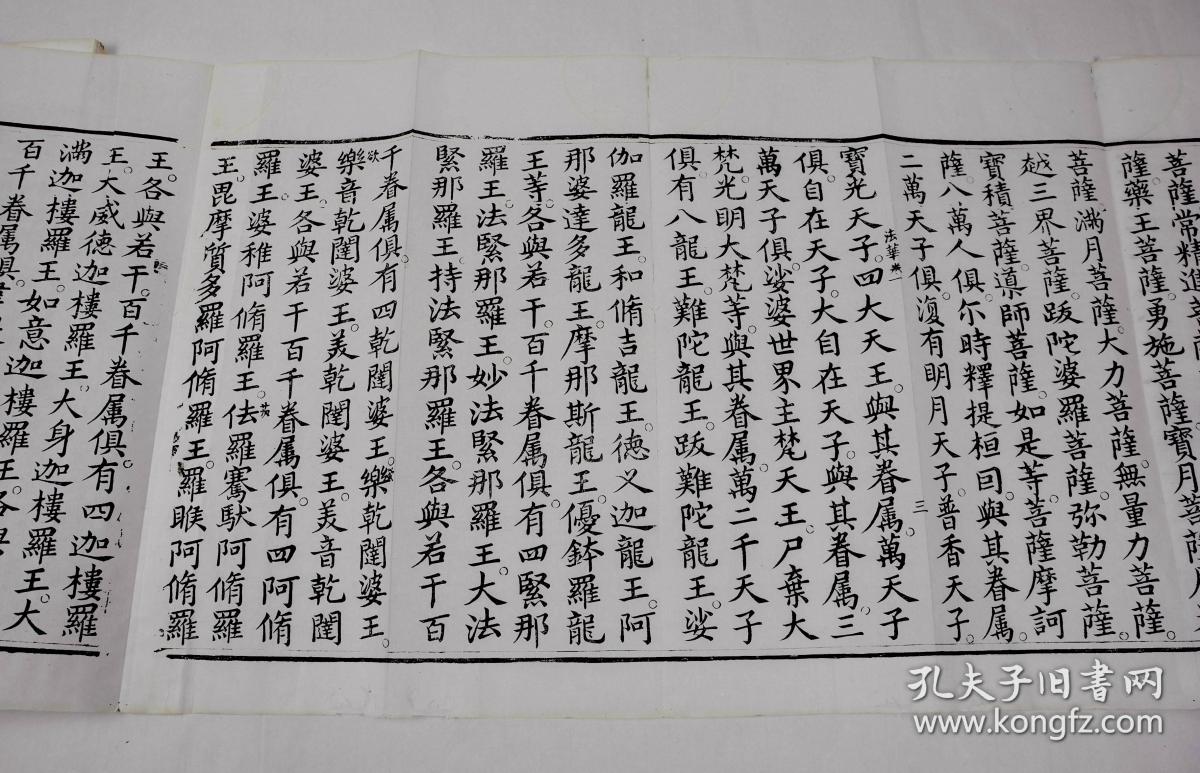 菩薩常精進菩薩
薩藥王菩薩。勇施菩薩。寶月菩薩
菩薩。滿月菩薩。大力菩薩。無量力菩薩。
越三界菩薩。跋陀婆羅菩薩。弥勒菩薩。
寶積菩薩。導師菩薩。如是等菩薩摩訶
薩八萬人俱。尒時釋提桓回與其眷属。
二萬天子俱。復有明月天子。普香天子。
法華卷一 三
寶光天子。四大天王。與其眷属。萬天子
俱。自在天子。大自在天子。與其眷属。三
萬天子俱。娑婆世界主梵天王。尸棄大
梵。光明大梵等。與其眷属。萬二千天子
俱。有八龍王。難陀龍王。跋難陀龍王。娑
伽羅龍王。和脩吉龍王。德义迦龍王。阿
那婆達多龍王。摩那斯龍王。優鉢羅龍
王等。各與若干百千眷属俱。有四緊那
羅王。法緊那羅王。妙法緊那羅王。大法
緊那羅王。持法緊那羅王。各與若干百
千眷属俱。有四乾闥婆王。樂乾闥婆王。
樂音乾闥婆王。美乾闥婆王。美音乾闥
婆王。各與若干百千眷属俱。有四阿脩
羅王。婆稚阿脩羅王。佉羅騫馱阿脩羅
王。毘摩質多羅阿脩羅王。羅睺阿脩羅
王。各與若干。百千眷属俱。有四迦樓羅
王。大威徳迦樓羅王。大身迦樓羅王。大
滿迦樓羅王。如意迦樓羅王。各與
百千眷属俱。
孔夫子旧書网
www.kongfz.com